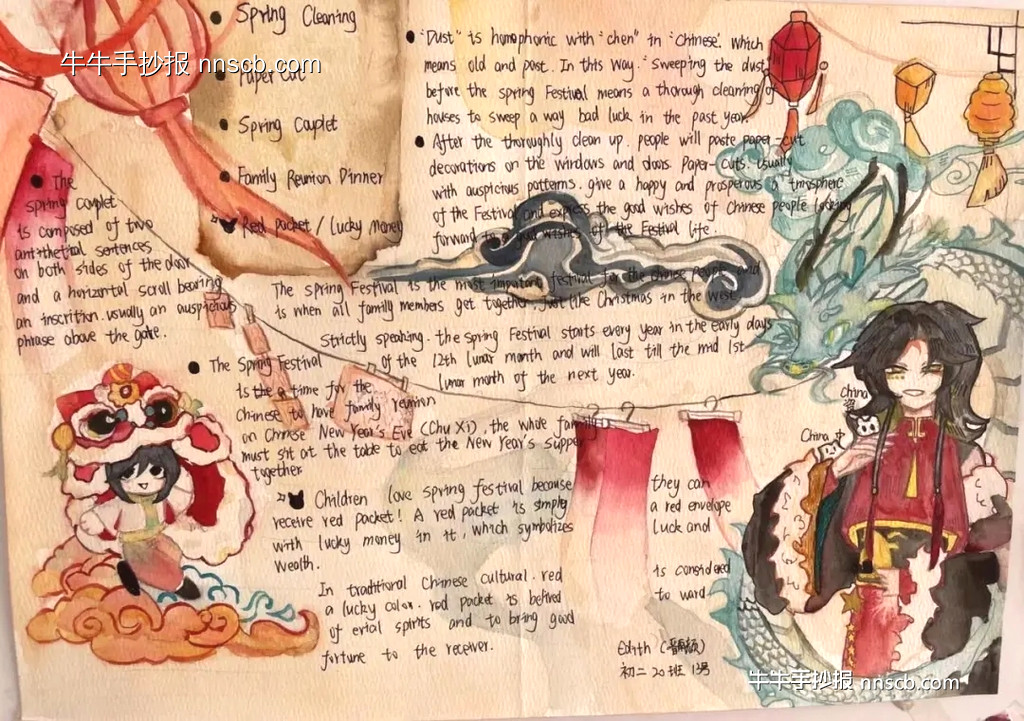 • Spring Cleaning
牛牛手抄报 nnscb.com
• Paper Cut
• Spring Couplet
• Family Reunion Dinner
Red Packet / Lucky Money
• "Dust" is homophonic with "chen" in "Chinese". which
means old and past. In this way. "Sweeping the dust
before the spring Festival means a thorough cleaning of
houses to sweep a way bad luck in the past year.
• After the thoroughly clean up. people will paste paper-cut
decorations on the windows and doors. Paper-cuts. usually
with auspicious patterns. give a happy and prosperous a tmospheric
of the Festival and express the good wishes of Chinese people looking
forward to good wishes of the Festival life.
• The
spring couplet
is composed of two
antithetial sentences
on both sides of the door
and a horizontal scroll bearing
an inscrition. usually an auspicious
phrase above the gate.
The Spring Festival is the most important festival for the chinese people and
is when all familly members get together, just like Christmas in the West.
Strictly speaking. the Spring Festival starts every year in the early days
of the 12th lunar month and will last till the mid 1st
lunar month of the next year.
• The Spring Festival
is the a time for the
Chinese to have family reunion
on Chinese New Year's Eve (Chu Xi), the whole family
must sit at the table to eat the New Year's supper
together
Children love spring festival because they can
receive red packet! A red packet is simply a red envelope
with lucky money in it, which symbolizes luck and
wealth.
In traditional Chinese cultural. red is considered
a lucky color. red packet is to ward
of spirits and to bring good
fortune to the receiver.
China
China
Edith
初二 20班 13号
牛牛手抄报 nnscb.com